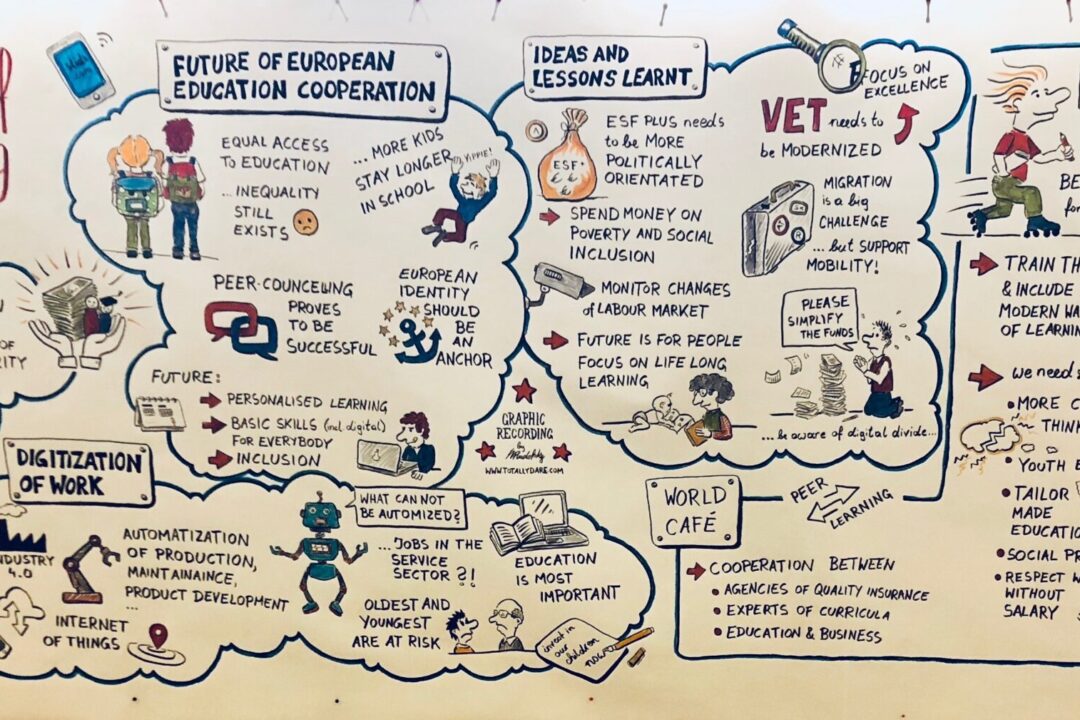 FUTURE OF EUROPEAN
EDUCATION COOPERATION
EQUAL ACCESS
TO EDUCATION
...INEQUALITY
STILL
EXISTS
...MORE KIDS
STAY LONGER
IN SCHOOL
YIPPIE!
PEER-COUNCELWNG
PROVES
TO BE
SUCCESSFUL
EUROPEAN
IDENTITY
SHOULD
BE
AN
ANCHOR
FUTURE:
PERSONALISED LEARNING
BASIC SKILLS (incl. digital)
FOR EVERYBODY
INCLUSION
IDEAS AND
LESSONS LEARNT
ESF+
ESF PLUS needs
to be MORE
POLITICALLY
ORIENTATED
SPEND MONEY ON
POVERTY AND SOCIAL
INCLUSION
MONITOR CHANGES
of LABOUR MARKET
FUTURE IS FOR PEOPLE
FOCUS ON LIFE LONG
LEARNING
FOCUS ON
EXCELLENCE
VET needs to
be MODERNIZED
MIGRATION
is a big
CHALLENGE
...but SUPPORT
MOBILITY!
PLEASE
SIMPLIFY
THE FUNDS
...be aware of digital divide...
GRAPHIC
RECORDING
by
WWW.TOTALLYDARE.COM
DIGITIZATION
OF WORK
INDUSTRY
4.0
AUTOMATIZATION
OF PRODUCTION,
MAINTAINANCE,
PRODUCT DEVELOPMENT
...
INTERNET
OF THINGS
WHAT CAN NOT
BE AUTOMIZED?
...JOBS IN THE
SERVICE
SECTOR ?!
OLDEST AND
YOUNGEST
ARE AT RISK
EDUCATION
IS MOST
IMPORTANT
invest in
our
children
now
WORLD
CAFÉ
PEER
LEARNING
COOPERATION BETWEEN
• AGENCIES OF QUALITY INSURANCE
• EXPERTS OF CURRICULA
• EDUCATION & BUSINESS
OF
BE
for
TRAIN TH
& INCLUDE
MODERN WA
OF LEARNIN
we need
• MORE C
THINK
• YOUTH E
• TAILOR
MADE
EDUCATIO
• SOCIAL PR
• RESPECT W
WITHOUT
SALARY